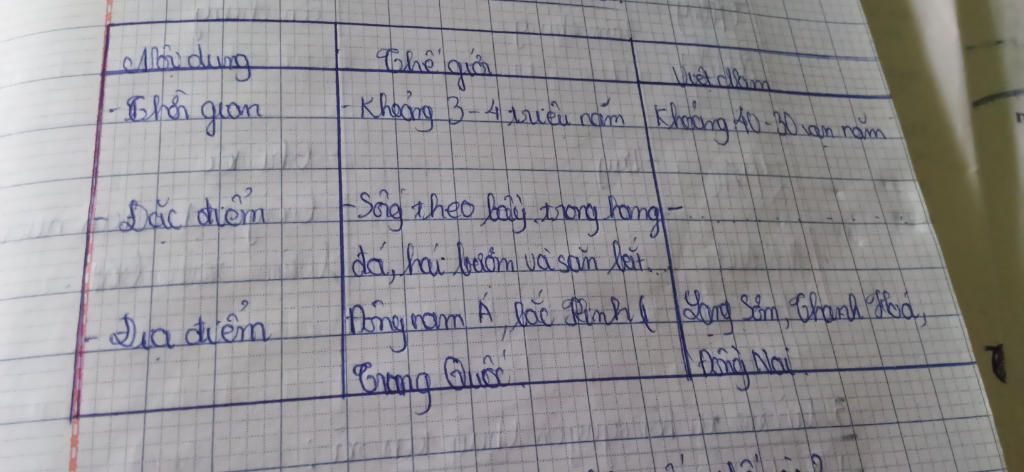 Nội dung
Thế giới
Việt Nam
- Thời gian
- Khoảng 3-4 triệu năm
Khoảng 40-30 vạn năm
- Đặc điểm
- Sống theo bầy, trong hang
đá, hái lượm và săn bắt...
- ..............
- Địa điểm
Đông nam Á, Bắc Kinh (
Trung Quốc
Lạng Sơn, Thanh Hoá,
Đồng Nai